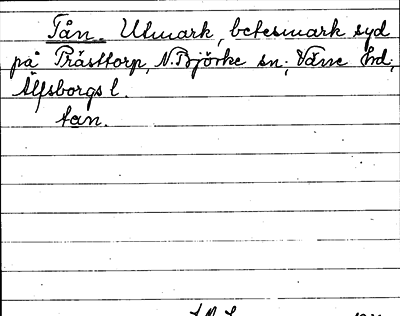 Tån. Utmark, betesmark syd
på Prästtorp, N. Björke sn; Väne hd,
Älfsborgs l.
tan.